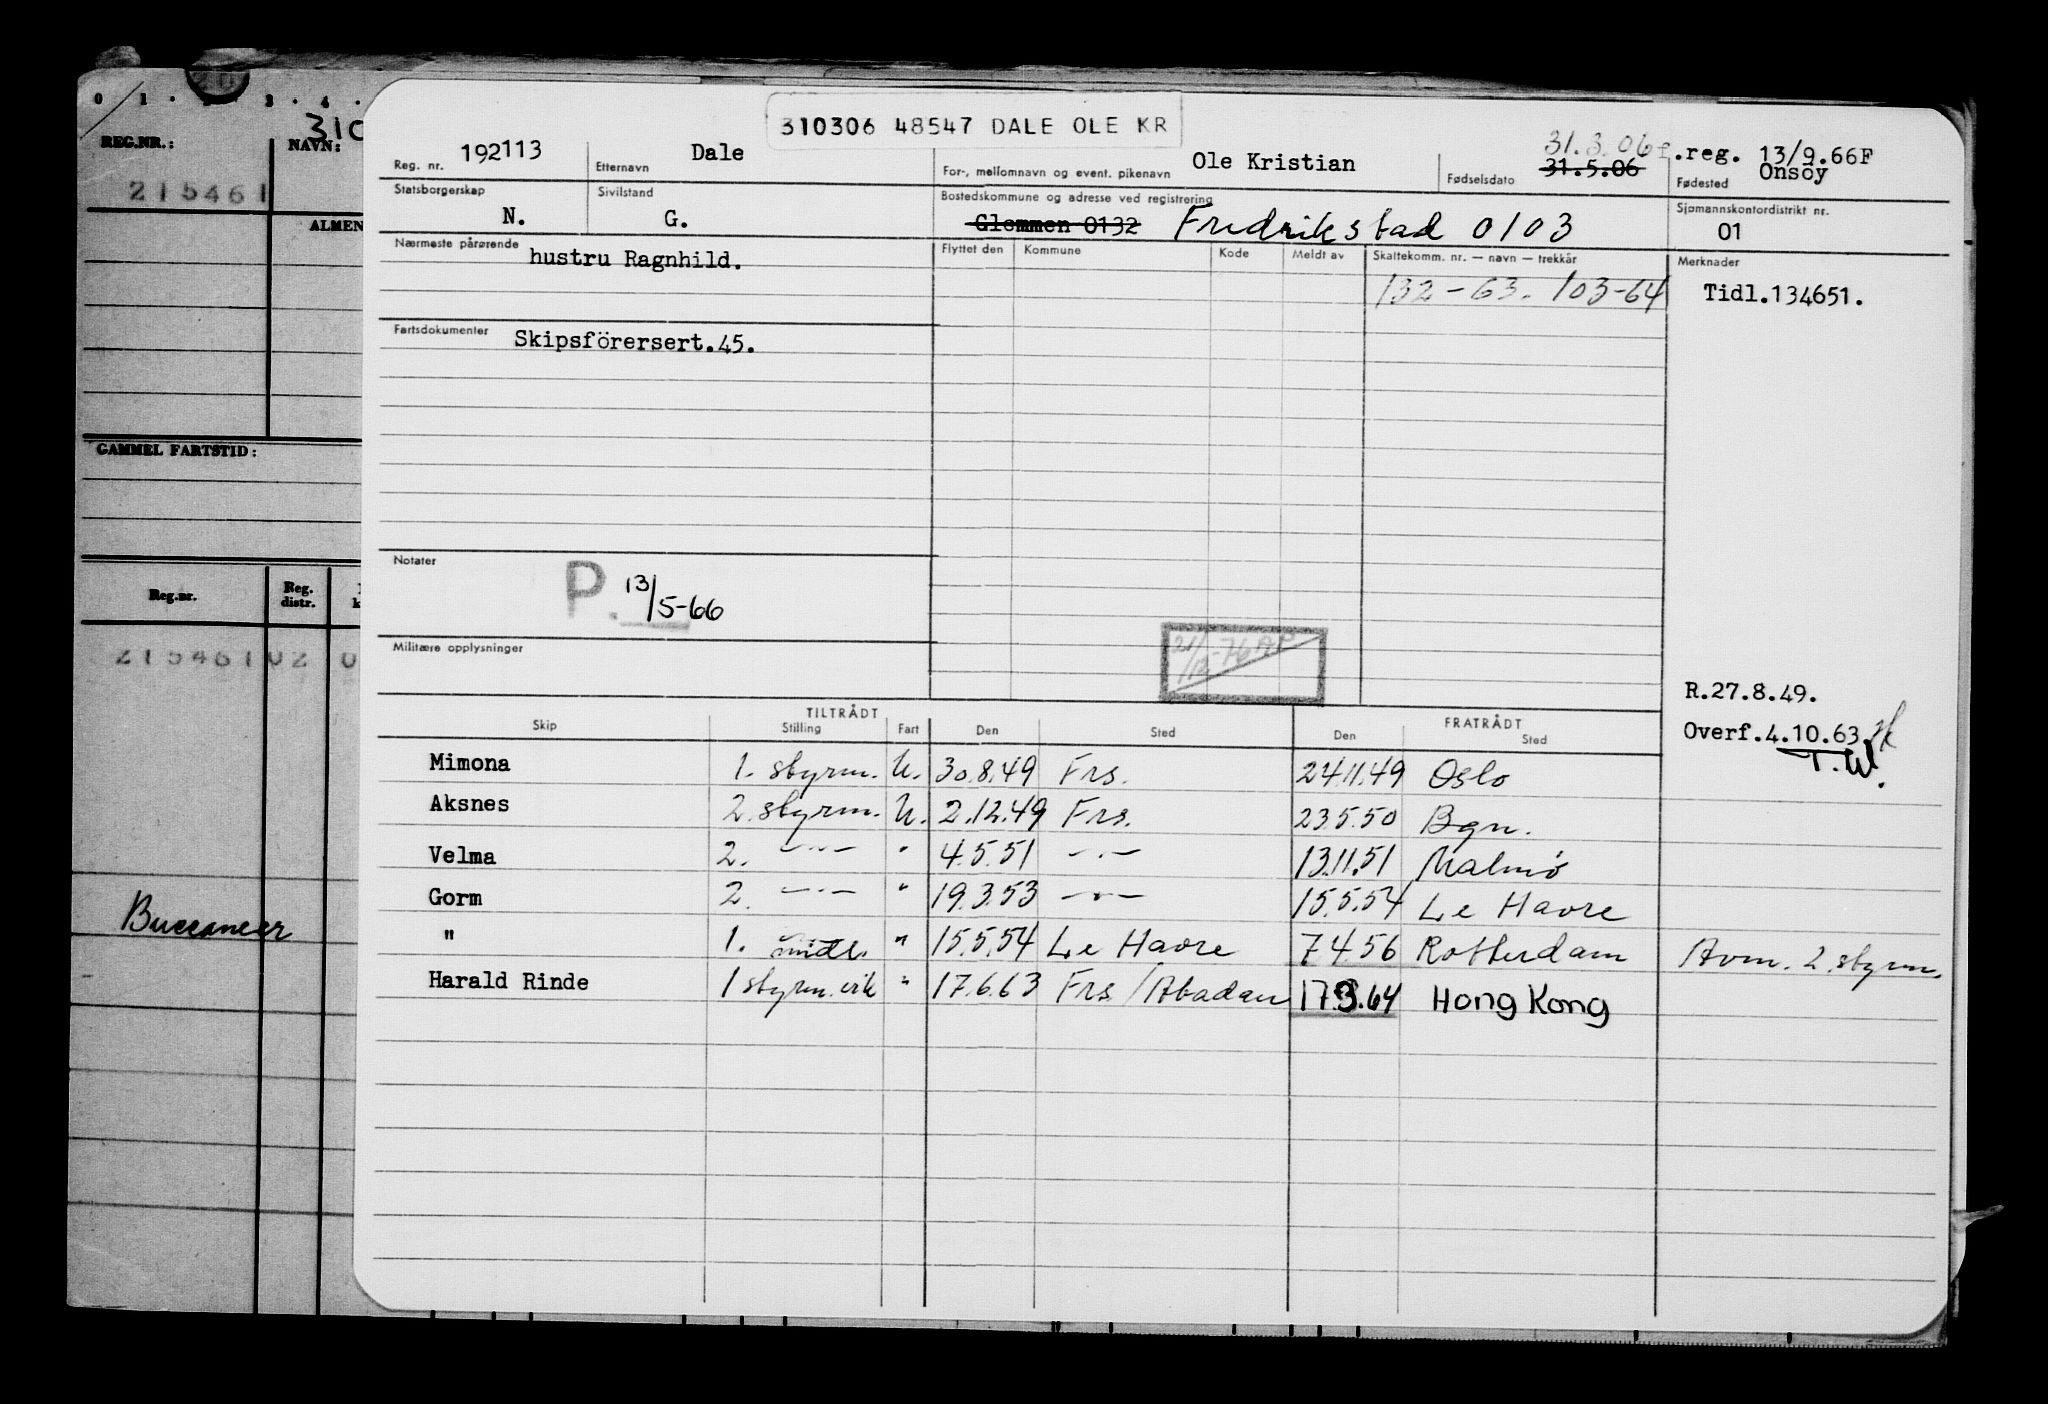 0 1 · 2 · 3 · 4 ·
REG.NR.:
NAVN: 310
215461
ALMEN
GAMMEL FARTSTID:
Reg.nr.
Reg. distr.
215461 02 0
Buccaneer
310306 48547 DALE OLE KR
Reg. nr. 192113
Etternavn Dale
For-, mellomnavn og event. pikenavn Ole Kristian
Fødselsdato 31.5.06 31.3.06 f.reg. 13/9.66F
Fødested Onsöy
Statsborgerskap N.
Sivilstand G.
Bostedskommune og adresse ved registrering
Glemmen 0132 Fredrikstad 0103
Sjømannskontordistrikt nr. 01
Nærmeste pårørende hustru Ragnhild.
Flyttet den Kommune Kode Meldt av Skattekomm. nr. — navn — trekkår
132-63. 103-64
Merknader
Tidl.134651.
Fartsdokumenter Skipsförersert.45.
Notater
P. 13/5-66
Militære opplysninger
21/12-76
R.27.8.49.
Overf.4.10.63
TILTRÅDT FRATRÅDT
Skip Stilling Fart Den Sted Den Sted
Mimona 1. styrm. U. 30.8.49 Frs. 24.11.49 Oslo
Aksnes 2. styrm. U. 2.12.49 Frs. 23.5.50 Bgn.
Velma 2. —"— " 4.5.51 —"— 13.11.51 Malmö
Gorm 2. —"— " 19.3.53 —"— 15.5.54 Le Havre
" 1. midl. " 15.5.54 Le Havre 7.4.56 Rotterdam Avm. 2. styrm.
Harald Rinde 1 styrm. vik " 17.6.63 Frs/Abadan 17.3.64 Hong Kong